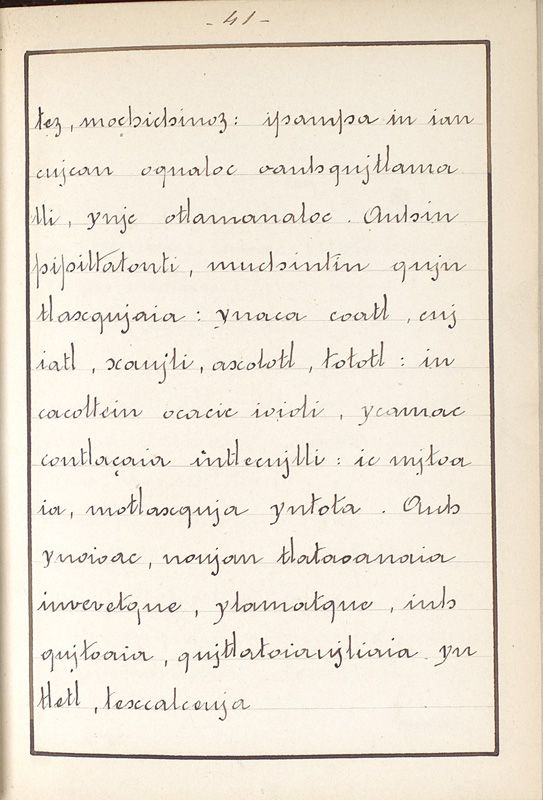 - 41 -
tez, mochichinoz: ipampa in ian
cujcan oqualoc oauhqujtlama
lli, ynjc otlamanaloc. Auhin
pipiltotonti, muchintin qujn
tlaxqujaia: ynaca coatl, cuj
iatl, xoujli, axolotl, tototl: in
cacoltein ocacic ivioli, ycamac
contlaçaia intlecujlli: ic mjtoa
ia, motlaxquja yntota. Auh
ynoioac, noujan tlataoanaia
invevetque, ylamatque, iuh
qujtoaia, qujtlatoiaujliaia yn
tletl, texcalceuja